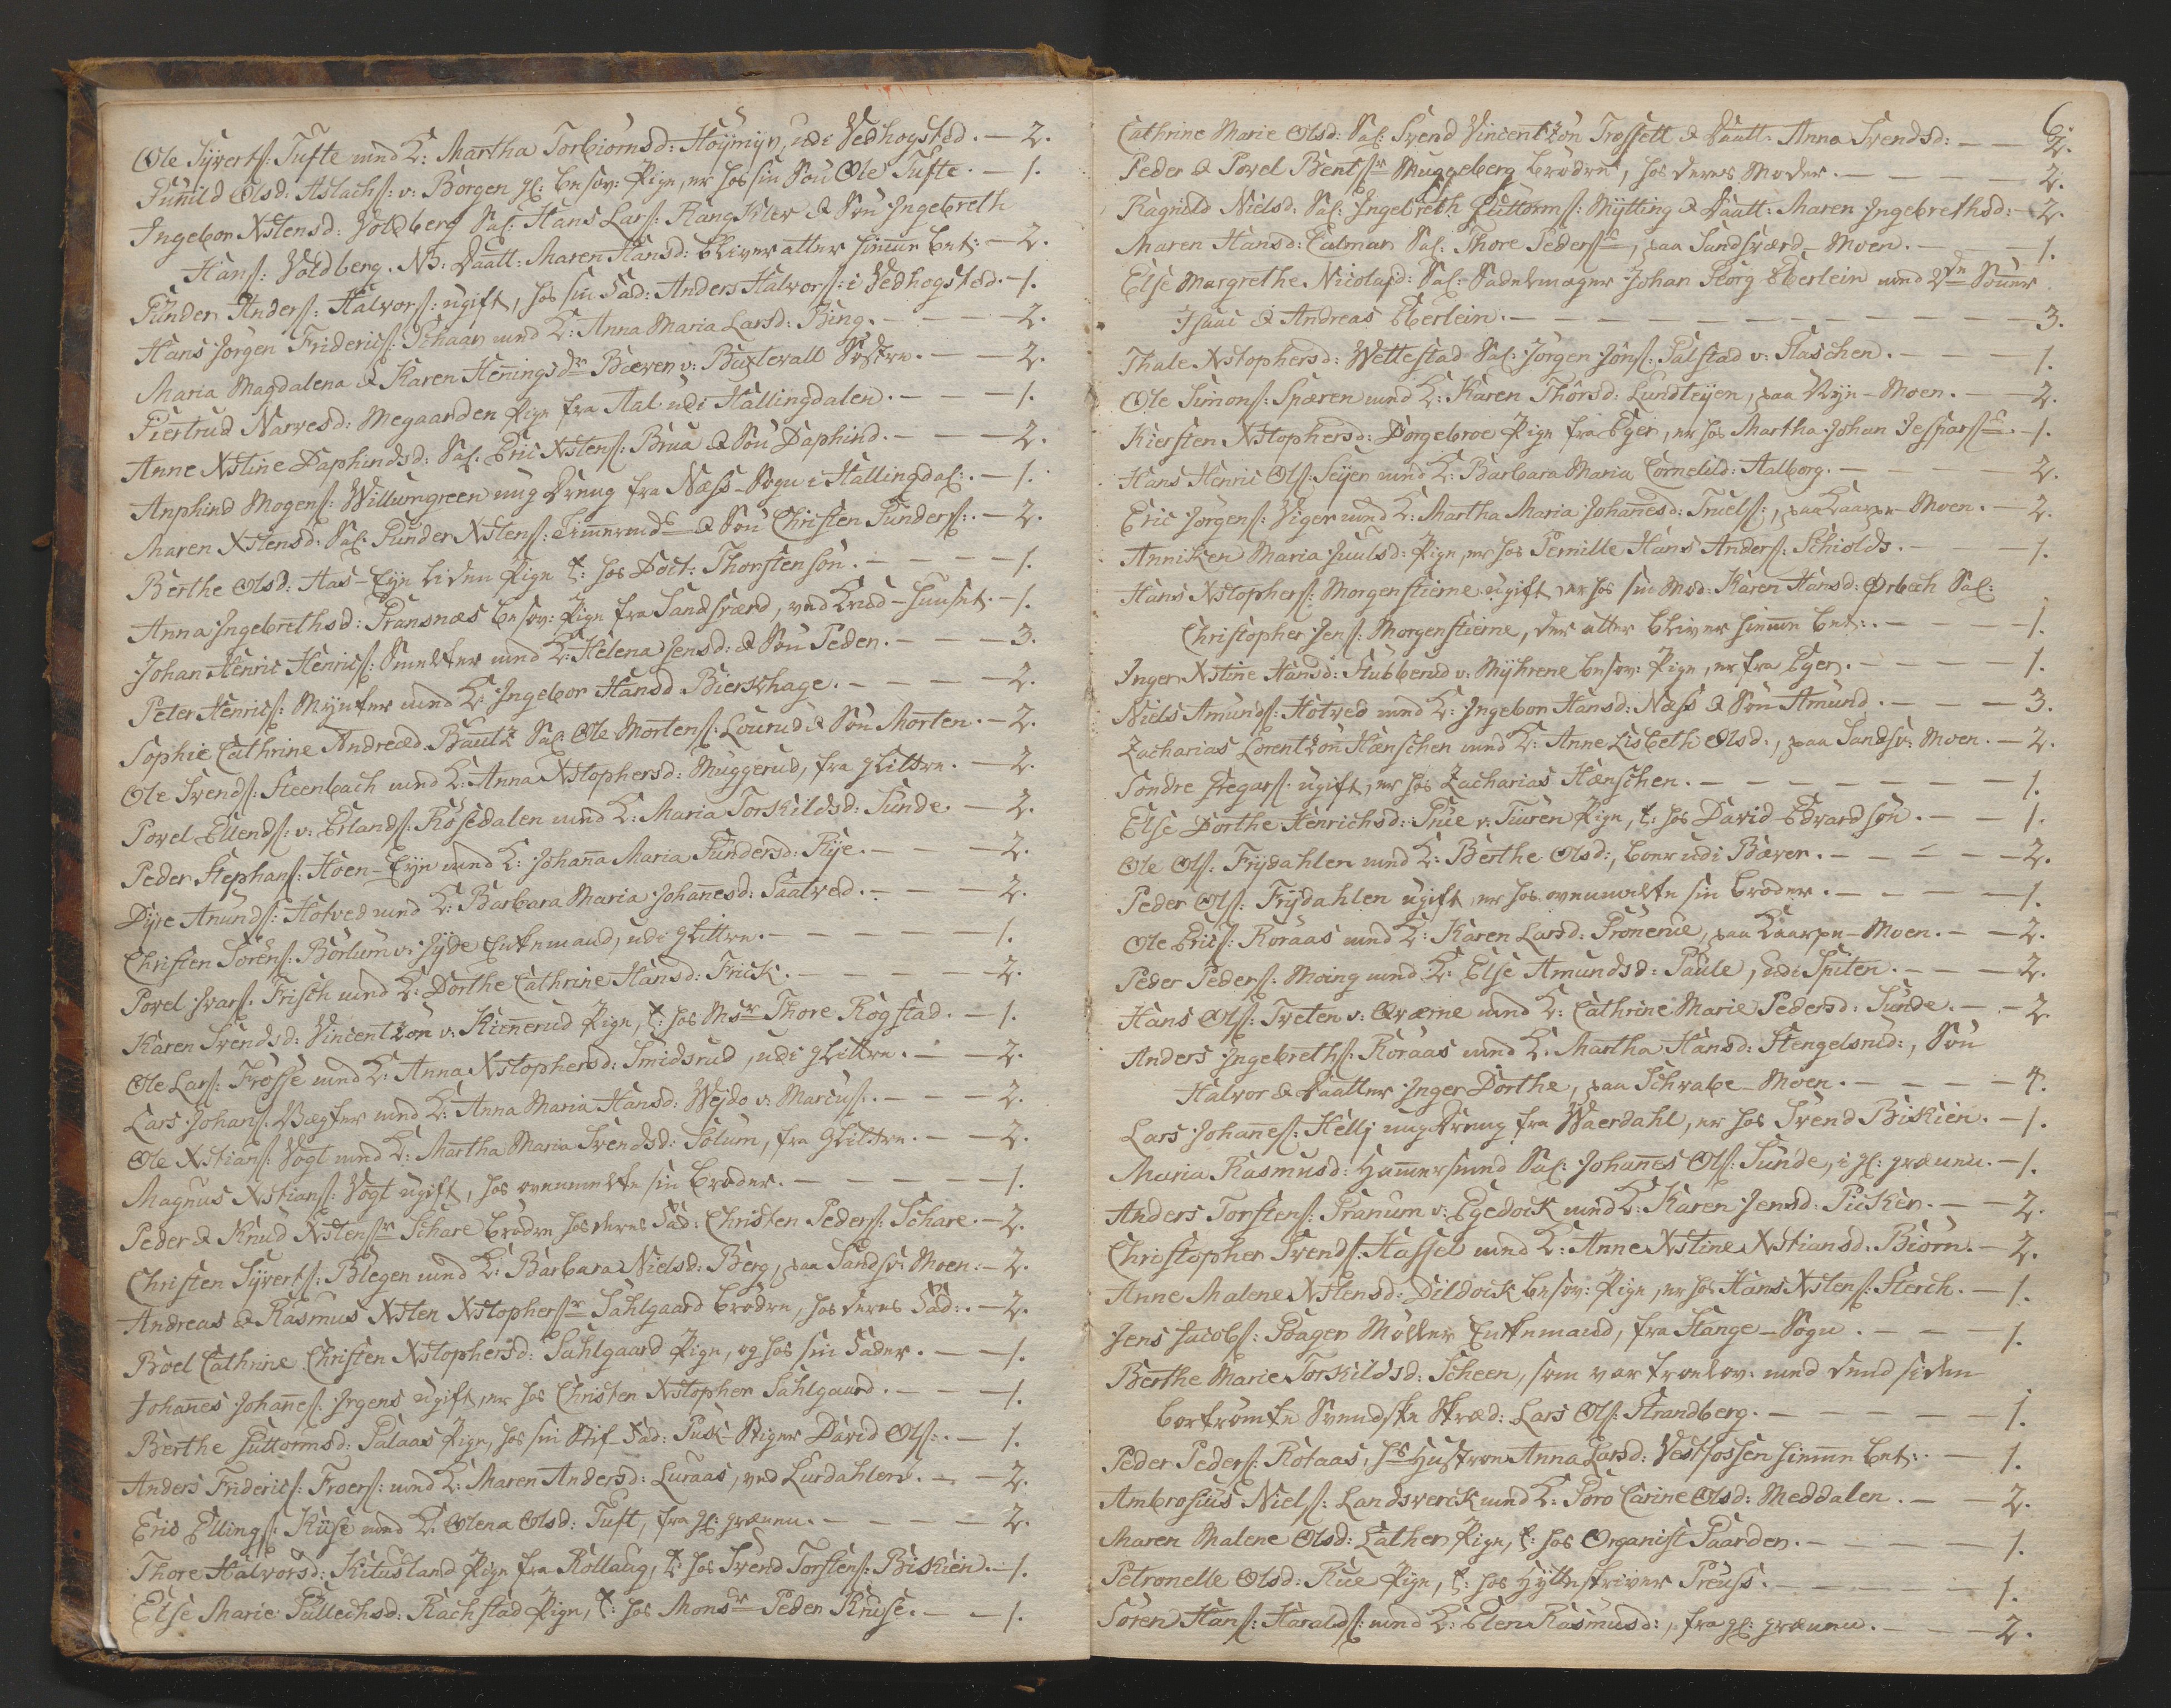 Ole Syverts: Tufte med K: Martha Torbiornsd: Höymyr, udi Vedhogsted. — 2.
Gunild Olsd: Aslachs: v: Borgen gl: besov: Pige, er hos sin Sön Ole Tufte. — 1.
Ingebor Xstensd: Voldberg Sal: Hans Lars: Rang Klev & Sön Ingebreth
Hans: Voldberg. NB: Daatt: Maren Hansd: bliver atter hiemme bet: — 2.
Gunder Anders: Halvors: ugift, hos sin Fad: Anders Halvors: i Vedhogsted. — 1.
Hans Jörgen Frideric s: Schaar med K: Anna Maria Larsd: Bing. — — — 2.
Maria Magdalena & Karen Heningsdr Bæver v: Buxlevall Söstre. — — 2.
Giertrud Narvesd: Megaarden Pige fra Aal udi Hallingdalen. — — — 1.
Anne Xstine Daphindsd: Sal: Eric Xstens: Brua & Sön Daphind. — — — 2.
Anphind Mogens: Willumgreen ung Dreng fra Næss-Sogn i Hallingdal: — 1.
Maren Xstensd: Sal: Gunder Xstens: Eimerud & Sön Christen Gunders: — 2.
Berthe Olsd: Aas-Eye liden Pige t: hos Doct: Thorstenson. — — — 1.
Anna Ingebrethsd: Gransnæs besov: Pige fra Sandsværd, ved Knud-Huuset. — 1.
Johan Henric Henrics: Smelter med K: Helena Jensd: & Sön Peder. — — — 3.
Peter Henrics: Mynter med K: Ingebor Hansd Bierkhage. — — — — 2.
Sophie Cathrine Andreæd. Bautz Sal: Ole Mortens: Lourud & Sön Morten. — 2.
Ole Svends: Steenbach med K: Anna Xstophersd: Muggerud, fra Glittre. — 2.
Povel Ellends: v: Erlands: Rosedalen med K: Maria Torkildsd: Tunde. — 2.
Peder Stephans: Hoen-Eye med K: Johanna Maria Gundersd: Rye. — — — 2.
Dyre Anunds: Hotved med K: Barbara Maria Johanesd: Saatved. — — — 2.
Christen Sörens: Börlum v: Jyde Enkemand, udi Glittre. — — — — — 1.
Povel Ivars: Frisch med K: Dorthe Cathrine Hansd: Frick. — — — — 2.
Karen Svendsd: Vincentzon v: Kiennerud Pige, t: hos Msr Thore Rogstad. — 1.
Ole Lars: Frosse med K: Anna Xstophersd: Smidsrud, udi Glittre. — — 2.
Lars Johans: Vægter med K: Anna Maria Hansd: Wejdo v: Marcus: — — — 2.
Ole Xstians: Vogt med K: Martha Maria Svendsd: Solum, fra Glittre. — — 2.
Magnus Xstians: Vogt ugift, hos ovenmelte sin broder. — — — — — 1.
Peder & Knud Xstensr Schare brödre hos deres Fad: Christen Peders: Schare. — 2.
Christen Syverts: Blegen med K: Barbara Nielsd: Berg, paa Sandsv: Moen. — 2.
Andreas & Rasmus Xsten Xstophersr Sahlgaard brödre, hos deres Fad: — 2.
Boel Cathrine Christen Xstophersd: Sahlgaard Pige, og hos sin Fader. — — 1.
Johanes Johanes: Irgens ugift, er hos Christen Xstopher Sahlgaard. — — — 1.
Berthe Guttormsd: Palaas Pige, hos sin Stif-Fad: Pusk-Stiger David Ols: — 1.
Anders Friderics: Froers: med K: Maren Andersd: Luraas, ved Lurdahlen. — — 2.
Eric Ellings: Kuse med K: Olena Olsd: Tuft, fra gl: grænen. — — — — 2.
Thore Halvorsd: Kitusland Pige fra Rollaug, t: hos Svend Torstens: Biskien. — 1.
Else Marie Gullechsd: Rachstad Pige, t: hos Monsr Peder Kruse. — — 1.
6.
Cathrine Marie Olsd: Sal: Svend Vincentzon Trossett & Daatt: Anna Svendsd: — — 2.
Peder & Povel Bentsr Muggeberg brödre, hos deres Moder. — — — — — 2.
Ragnild Nielsd: Sal: Ingebreth Guttorms: Mytting & Daatt: Maren Ingebrethsd: — 2.
Maren Hansd: Calmar Sal: Thore Peders:, paa Sandsværd-Moen. — — — — 1.
Else Margrethe Nicolajd: Sal: Sadelmager Johan Georg Eberlein med Do Söner
Isaac & Andreas Eberlein. — — — — — — — — — 3.
Thale Xstophersd: Wettestad Sal: Jörgen Jöns: Palstad v: Flaschen. — — — 1.
Ole Simons: Spæren med K: Karen Thorsd: Lundteyen, paa Nye-Moen. — — 2.
Kiersten Xstophersd: Dorgebroe Pige fra Eger, er hos Martha Johan Jespars: — 1.
Hans Henric Ols: Seyer med K: Barbara Maria Cornelild: Aalborg. — — — — 2.
Eric Jörgens: Viger med K: Martha Maria Johanesd: Truels:, paa Kaarpe-Moen. — 2.
Anniken Maria Juulsd: Pige, er hos Pernille Hans Anders: Schiolds. — — — 1.
Hans Xstophers: Morgenstierne ugift, er hos sin Mod: Karen Hansd: Ørbech Sal:
Christopher Jens: Morgenstierne, der atter bliver hiemme bet: — — — — 1.
Inger Xstine Hansd: Stubberud v: Myhrene besov: Pige, er fra Eger. — — — — 1.
Niels Amunds: Hotved med K: Ingebor Hansd: Næss & Sön Amund. — — — 3.
Zacharias Lorentzon Hænschen med K: Anne Lisbeth Olsd:, paa Sandsv: Moen. — 2.
Sondre Gregars: ugift, er hos Zacharias Hænschen. — — — — — — — 1.
Else Dorthe Henrichsd: Grue v: Tiuren Pige, t: hos David Edvardsön. — — 1.
Ole Ols: Frydahlen med K: Berthe Olsd:, boer udi Bæver. — — — — — 2.
Peder Ols: Frydahlen ugift, er hos ovenmelte sin broder. — — — — 1.
Ole Erics: Roraas med K: Karen Larsd: Gronerud, paa Kaarpe-Moen. — — 2.
Peder Peders: Moing med K: Else Amundsd: Paule, udi Spiten. — — — 2.
Hans Ols: Tveten v: Qværne med K: Cathrine Marie Pedersd: Tunde. — — 2
Anders Ingebreths: Roraas med K: Martha Hansd: Stengelsrud:, Sön
Halvor & Daatter Inger Dorthe, paa Schrabe-Moen. — — — — — 4.
Lars Johanes: Hellj ung Dreng fra Waerdahl, er hos Svend Biskien. — 1.
Maria Rasmusd: Hammersmed Sal: Johanes Ols: Tunde, i gl: grænen. — 1.
Anders Torstens: Granum v: Egedock med K: Karen Jensd: Picken. — — 2.
Christopher Svends: Hassel med K: Anne Xstine Xstiansd: Biörn. — 2.
Anne Malene Xstensd: Dildock besov: Pige, er hos Hans Xstens: Sterch. — 1.
Jens Jacobs: Poager Möller Enkemand, fra Stange-Sogn. — — — 1.
Berthe Marie Torkildsd: Scheen, som var trolov: med dend siden
bortrömte Svendske Skræd: Lars Ols: Strandberg. — — — — — — 1.
Peder Peders: Rotaas, hs Hustroe Anna Larsd: Vestfossen hiemme bet: — 1.
Ambrosius Niels: Landsverck med K: Goro Carine Olsd: Meddalen. — — 2.
Maren Malene Olsd: Lather Pige, t: hos Organist Paarden. — — — — 1.
Petronelle Olsd: Rue Pige, t: hos Hytteskriver Preuss. — — — — — 1.
Sören Hans: Haralds: med K: Elen Rasmusd:, fra gl: grænen. — — — 2.